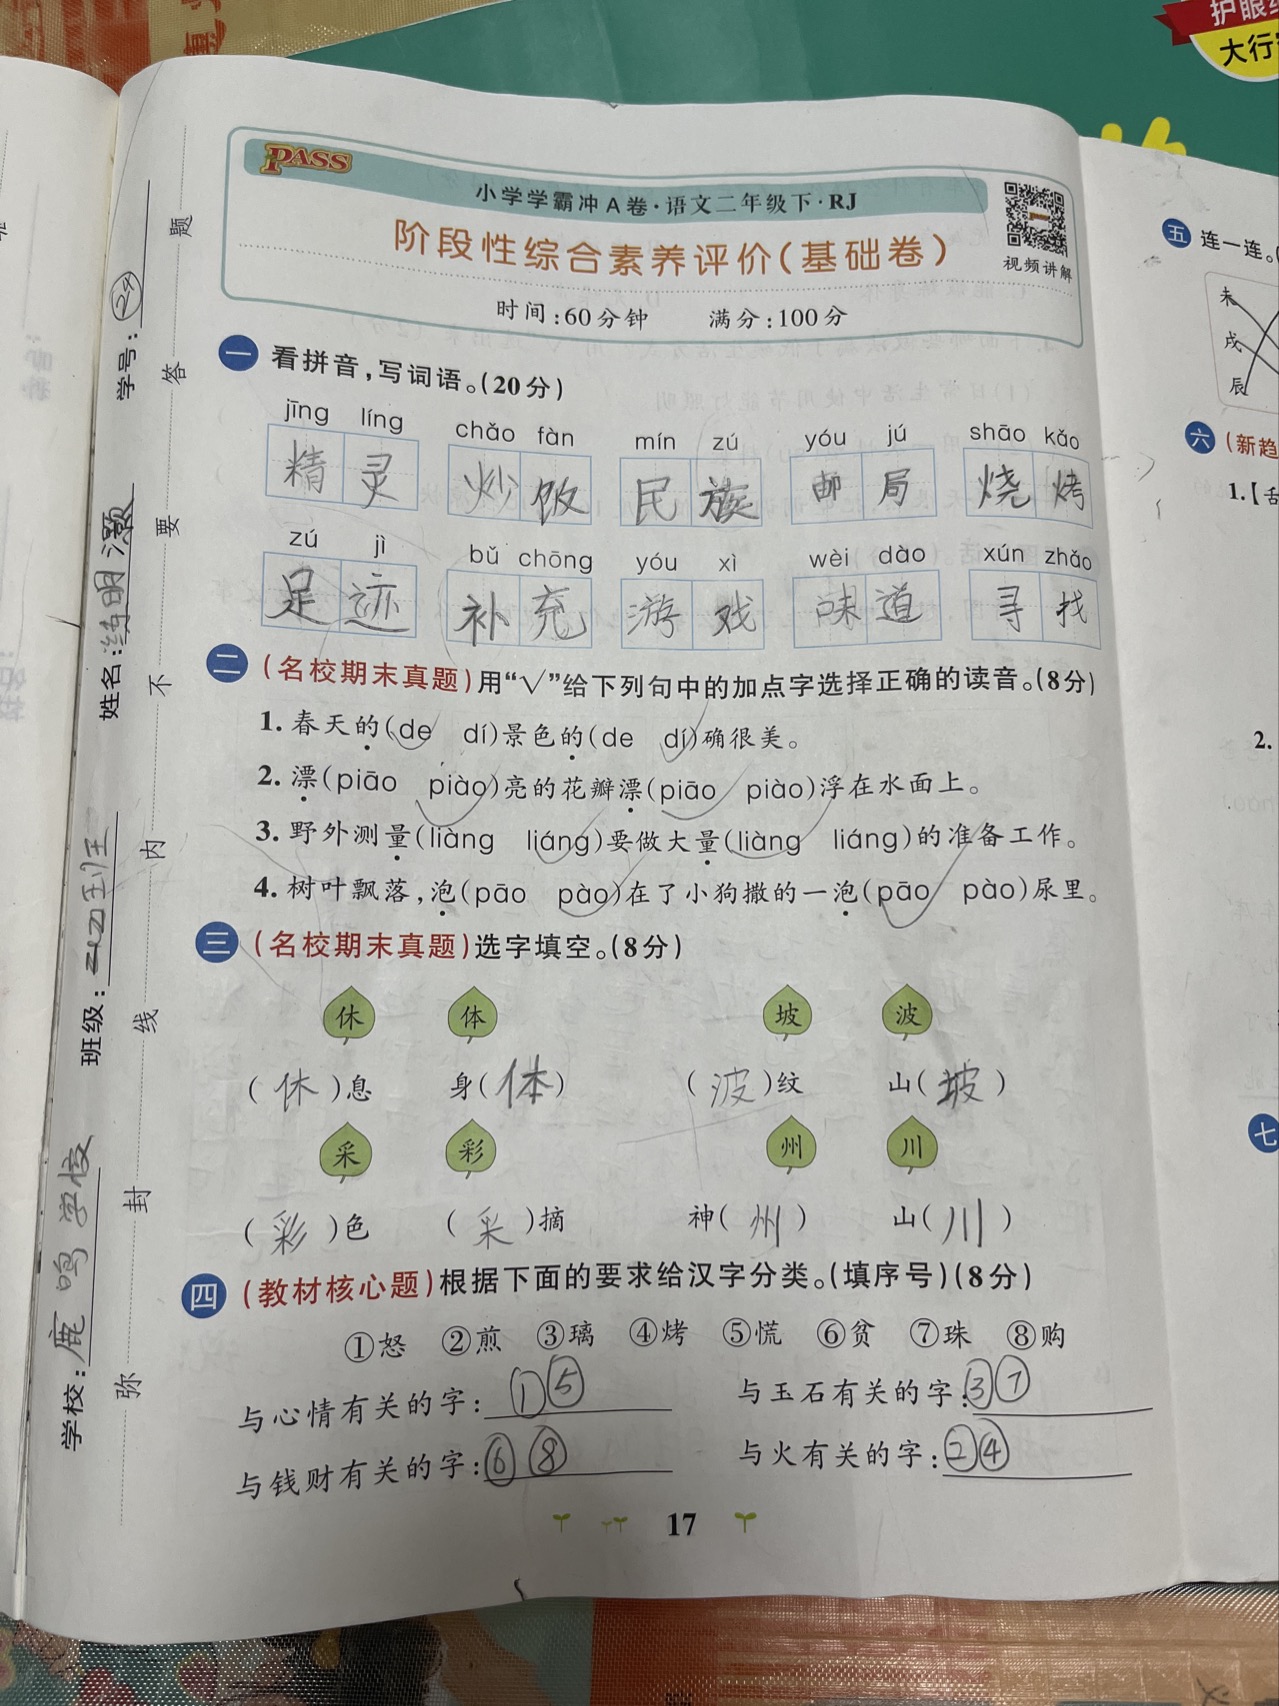 护眼纟
大行
PASS
小学学霸冲A卷·语文二年级下·RJ
阶段性综合素养评价(基础卷)
视频讲解
时间:60分钟 满分:100分
一 看拼音,写词语。(20分)
jīng líng chǎo fàn mín zú yóu jú shāo kǎo
精灵 炒饭 民族 邮局 烧烤
zú jì bǔ chōng yóu xì wèi dào xún zhǎo
足迹 补充 游戏 味道 寻找
二 (名校期末真题)用“√”给下列句中的加点字选择正确的读音。(8分)
1. 春天的(de dí)景色的(de dí)确很美。
2. 漂(piāo piào)亮的花瓣漂(piāo piào)浮在水面上。
3. 野外测量(liàng liáng)要做大量(liàng liáng)的准备工作。
4. 树叶飘落,泡(pāo pào)在了小狗撒的一泡(pāo pào)尿里。
三 (名校期末真题)选字填空。(8分)
休 体 坡 波
(休)息 身(体) (波)纹 山(坡)
采 彩 州 川
(彩)色 (采)摘 神(州) 山(川)
四 (教材核心题)根据下面的要求给汉字分类。(填序号)(8分)
①怒 ②煎 ③璃 ④烤 ⑤慌 ⑥贫 ⑦珠 ⑧购
与心情有关的字:①⑤ 与玉石有关的字:③⑦
与钱财有关的字:⑥⑧ 与火有关的字:②④
17
学校:鹿鸣学校 班级: 姓名: 明灏 学号:24
弥 封 线 内 不 要 答 题
五 连一连。
未
戌
辰
六 (新趋
1.【舌
2.
七